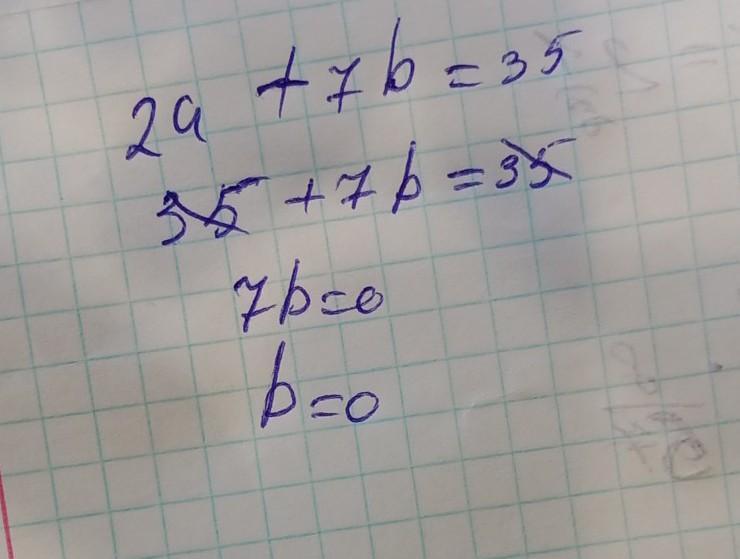 2a + 7b = 35
35 + 7b = 35
7b = 0
b = 0